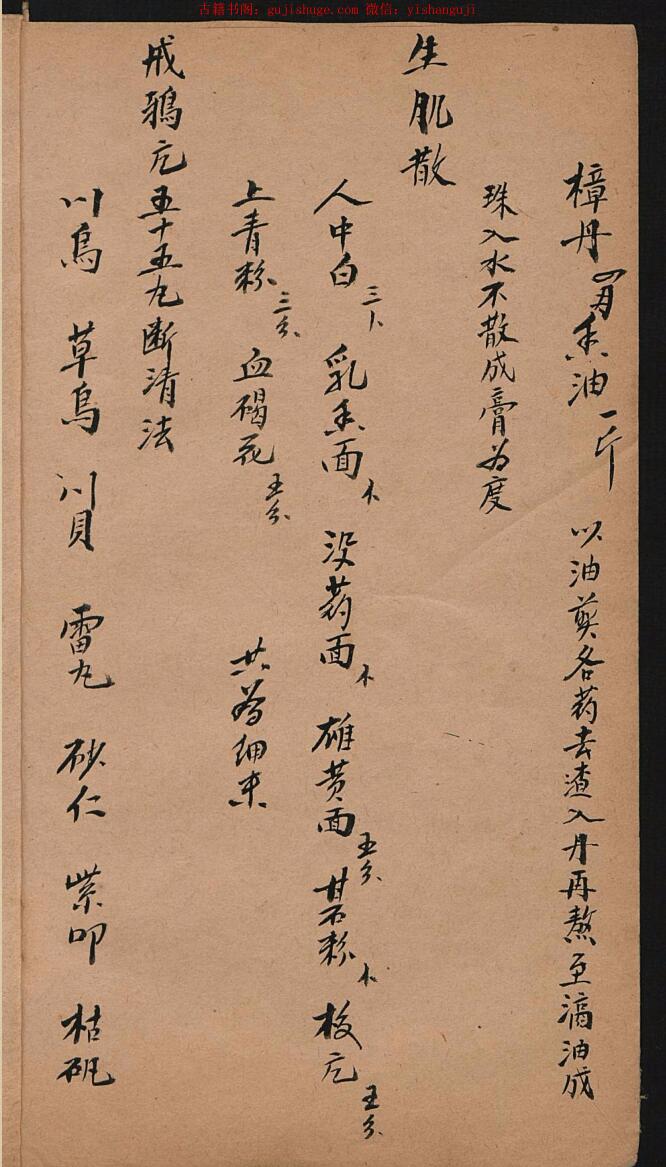 古籍书阁：gujishuge.com 微信：yishanguji
樟丹 香油一斤 以油煎各药去渣入丹再熬至滴油成
珠入水不散成膏为度
生肌散
人中白 乳香面 没药面 雄黄面五分 甘石粉 梅片五分
上青粉三分 血碣花五分 共为细末
戒鸦片五十五丸断清法
川乌 草乌 川贝 雷丸 砂仁 紫叩 枯矾